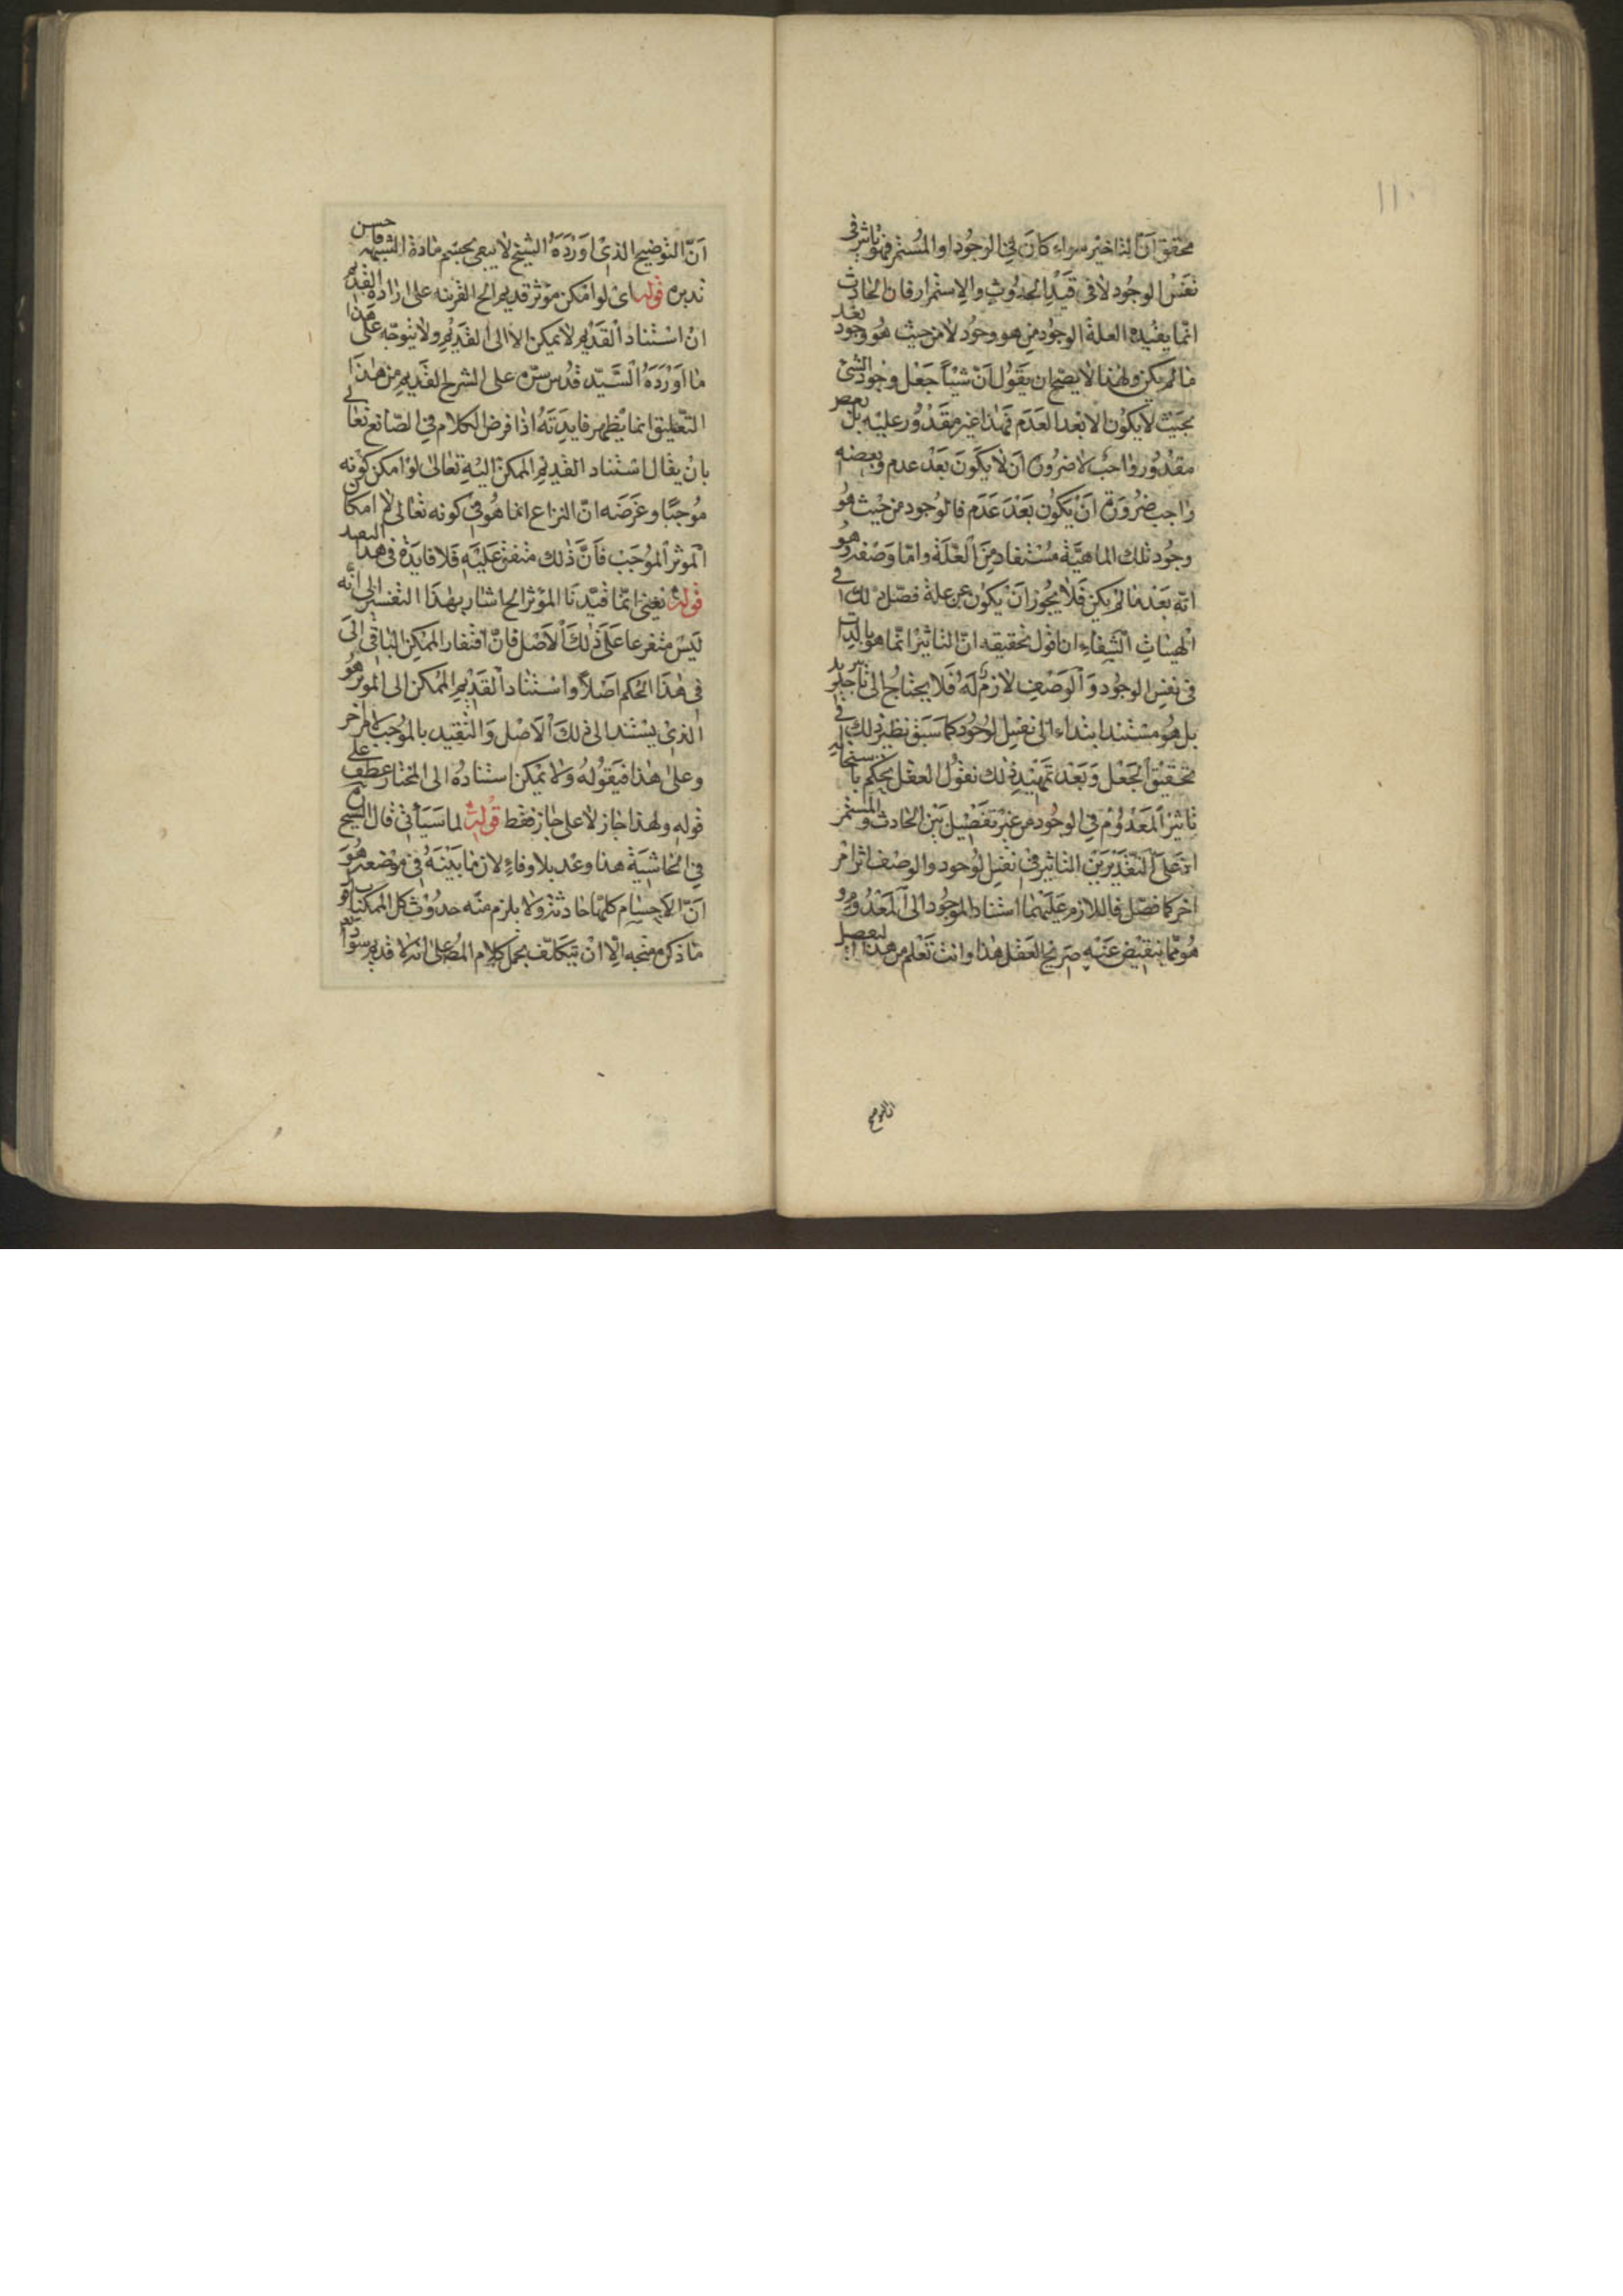 محقق ان التاخير سواء كان في الوجود او المستمر فهو تاثير في
نفس الوجود لا في قيد الحدوث والاستمرار فان الحادث
انما يفيده العلة الوجود من هو وجود لا من حيث هو وجود بعد
ما لم يكن ولهذا لا يصح ان يقول ان شيئا جعل وجود الشئ
بحيث لا يكون الا بعد العدم فهذا غير مقدور عليه بل بعض
مقدور واجب لا ضرورة ان لا يكون بعد عدم وبعضه
واجب ضرورة ان يكون بعد عدم فالوجود من حيث هو
وجود تلك الماهية مستفاد من العلة واما وصفه وهو
انه بعد ما لم يكن فلا يجوز ان يكون عن علة فصل ذلك في
الهيات الشفاء اقول تحقيقه ان التاثير انما هو بالذات
في نفس الوجود والوصف لازم له فلا يحتاج الى تاثير جديد
بل هو مستند ابتداء الى نفس الوجود كما سبق نظير ذلك في
تحقيق الجعل وبعد تمهيد ذلك نقول العقل يحكم باستحالة
تاثير المعدوم في الوجود من غير تفصيل بين الحادث والمستمر
اذ على التقديرين التاثير في نفس الوجود والوصف اثر امر
اخر كما فصل فاللازم عليهما استناد الموجود الى المعدوم و
هو مما ينقبض عنه صريح العقل هذا وانت تعلم من هذا التفصيل
ان التوضيح
ان التوضيح الذي اورده الشيخ لا يبقى بحسم مادة الشبهة فاحسن
تدبره قوله اى لو امكن مؤثر قديم الخ القرينه على ارادة القديم
ان استناد القديم لا يمكن الا الى القديم ولا يتوجه على هذا
ما اورده السيد قدس سره على الشرح القديم من هذا
التعليق انما يظهر فايدته اذا فرض الكلام في الصانع تعالى
بان يقال استناد القديم الممكن اليه تعالى لو امكن كونه
موجبا وغرضه ان النزاع انما هو في كونه تعالى لا امكان
المؤثر الموجب فان ذلك متفق عليه فلا فايدة في هذا التقييد
قوله نعني انما قيدنا المؤثر الخ اشار بهذا التفسير الى انه
ليس متفرعا على ذلك الاصل فان افتقار الممكن الباقي الى
في هذا الحكم اصلا واستناد القديم الممكن الى المؤثر هو
الذي يستند الى ذلك الاصل والتقييد بالموجب لامر اخر
وعلى هذا فيقوله ولا يمكن استناده الى المختار عطف على
قوله ولهذا جاز لا على جاز فقط قوله لما سياتي قال الشيخ
في الحاشية هذا وعد بلا وفاء لان ما بينه في موضعه هو
ان الاجسام كلها حادثة ولا يلزم منه حدوث كل الممكنات و
ما ذكره متجه الا ان يتكلف بحمل كلام المص على انه لا قديم سواه